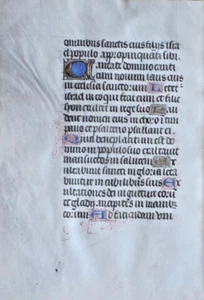 omnibus sanctis eius filiis isra
el populo appropinquanti sibi.
Cantate domino canti
cum novum laus eius
in ecclesia sanctorum. Letet
israel in eo qui fecit eum et filie
syon exultent in rege suo. Lau
dent nomen eius in choro in tym
pano et psalterio psallant ei.
Quia beneplacitum est do
mino in populo suo et exaltavit
mansuetos in salutem. Ex
ultabunt sancti in gloria leta
buntur in cubilibus suis. Ex
ultationes dei in gutture eorum
et gladij ancipites in manibus
eorum. Ad faciendam vin